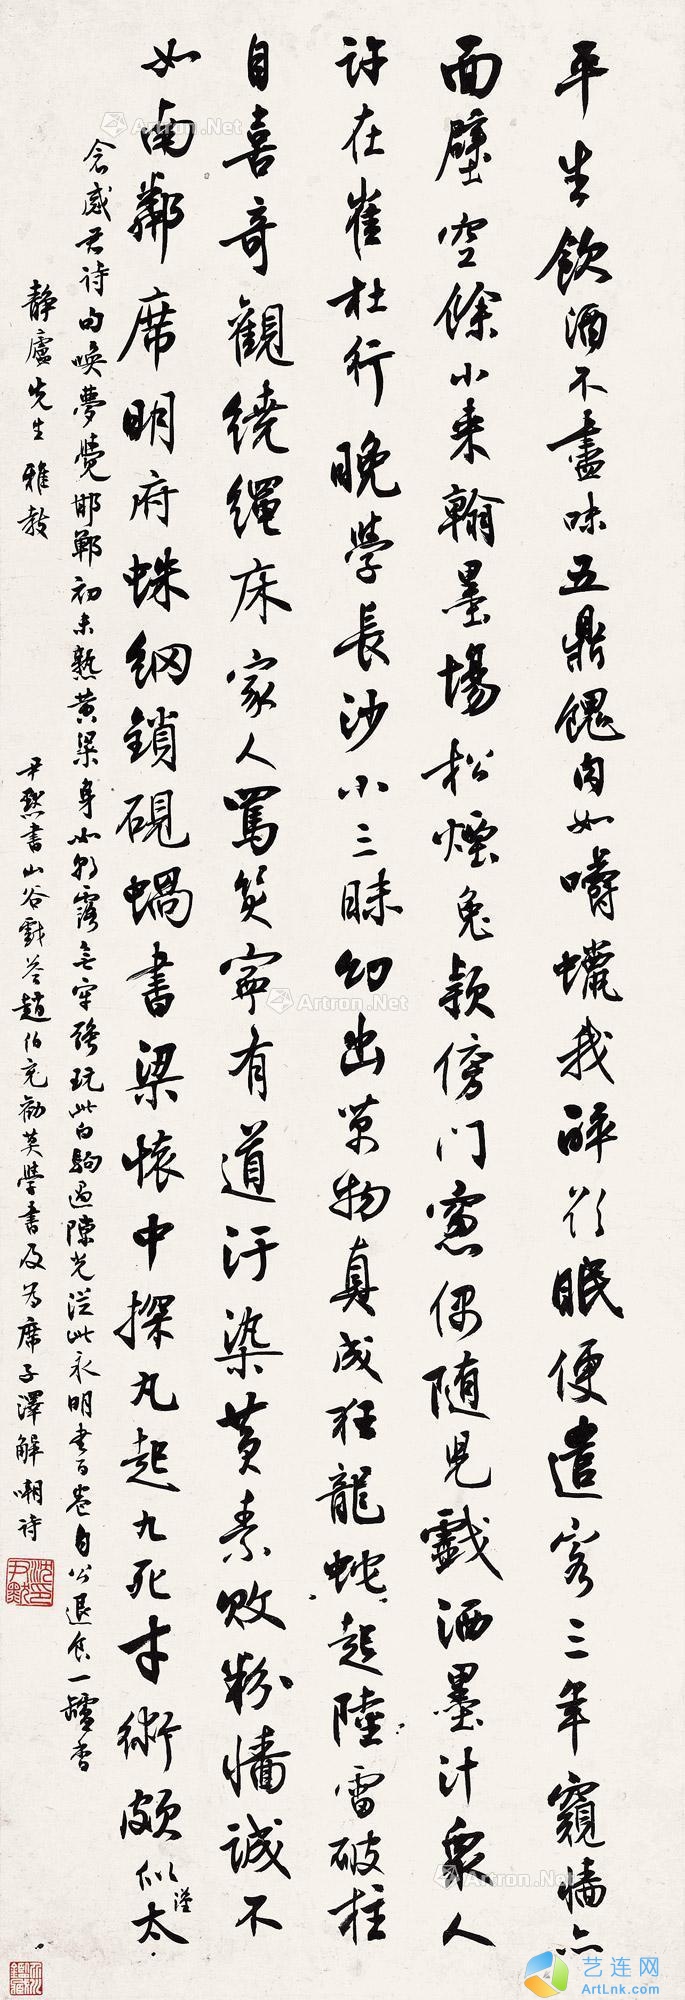 平生飲酒不盡味五鼎餽肉如嚼蠟我醉欲眠便遣客三年窺牆亦
面壁空餘小來翰墨場松煙兔穎傍門窻偶随兒戲洒墨汁衆人
許在崔杜行晚學長沙小三昧幻出萬物真成狂龍蛇起陸雷破柱
自喜奇觀繞繩床家人罵笑寧有道汙染黃素敗粉牆誠不
如南鄰席明府蛛網鎖硯蝸書梁懷中探丸起九死才術頗似漢太
倉感君詩句喚夢覺邯鄲初未熟黄梁身如朝露無牢强玩此白駒過隙光從此永明書百卷自公退食一罏香
靜廬先生雅教
尹默書山谷戲答趙伯充勸莫學書及為席子澤解嘲詩
沈尹默印
Artron.Net
艺连网
ArtLnk.com